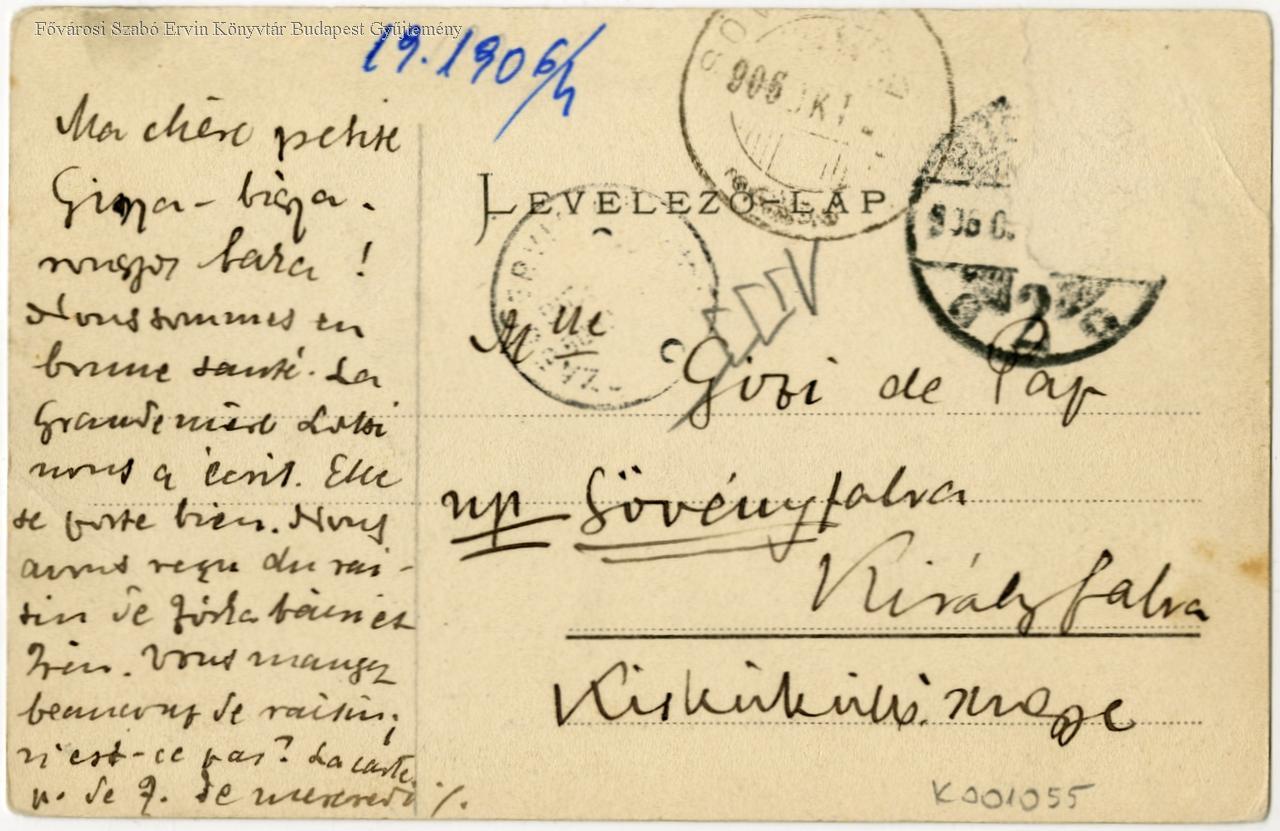 Fővárosi Szabó Ervin Könyvtár Budapest Gyűjtemény
19.1906
906 OK 1
LEVELEZŐ-LAP
906 O
2
Ma chère petite
Gizza - bizza
baza !
Nous sommes en
bonne santé. La
Grandemère Lotti
nous a écrit. Elle
se porte bien. Nous
avons reçu du rai-
sin de
Irén. Vous mangez
beaucoup de raisin,
n'est-ce pas? La carte
p. de J. de mercredi ./.
Mlle
Gizi de Pap
up Sövényfalva
Királyfalva
Kisküküllő. megye
K001055